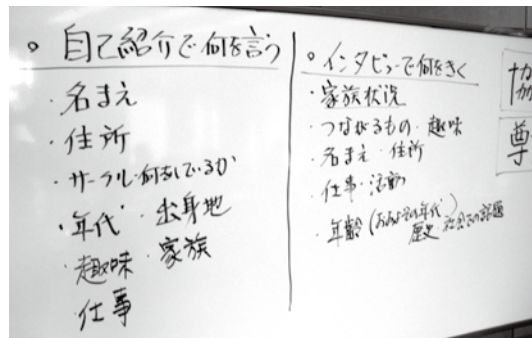 。自己紹介で何を言う
・名まえ
・住所
・サークル・何をしているか
・年代・出身地
・趣味・家族
仕事
。インタビューで何をきく
・家族状況
・つながるもの・趣味
・名まえ・住所
・仕事・活動
・年齢(おおよその年代)
歴史 社会での話題
協
尊